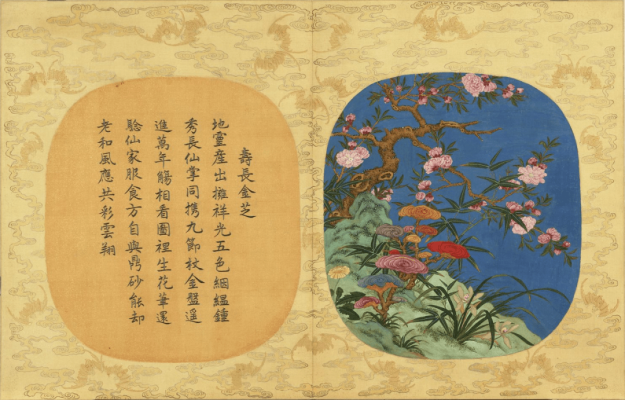 壽長金芝
地靈產出擁祥光五色絪緼鍾
秀長仙掌同携九節杖金盤遥
進萬年觴相看圖裡生花筆還
騐仙家服食方自與鼎砂能却
老和風應共彩雲翔